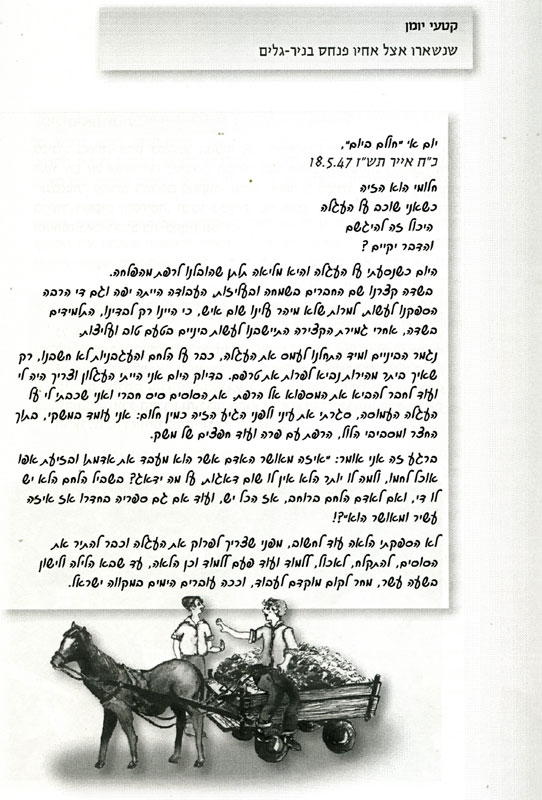 קטעי יומן
שנשארו אצל אחיו פנחס בניר-גלים
יום א׳ "חולם ביום",
כ"ח אייר תש"ז 18.5.47
חלומי הוא הזיה
כשאני שוכב על העגלה
היכול זה להיגשם
והדבר יקיים ?
היום כשנסעתי על העגלה והיא מליאה תלתן שהובלנו לרפת מהפלחה.
בשדה קצרנו שם החברים בשמחה ובעליזות. העבודה הייתה יפה וגם די הרבה
הספקנו לעשות, למרות שלא מיהר עלינו שום איש, כי היינו רק לבדינו, התלמידים
בשדה, אחרי גמירת הקצירה התישבנו לעשות ביניים בטעם טוב ועליצות.
נגמר הביניים ומיד התחלנו לעמס את העגלה, כבר על הלחם והעגבניות לא חשבנו, רק
שאיך ביתר מהירות נביא לפרות את טרפם. בדיוק היום אני הייתי העגלון וצריך היה לי
ועוד לחבר להביא את המספוא אל הרפת. את הסוסים סיס חברי ואני שכבתי לי על
העגלה העמוסה, סגרתי את עיני ולפני הגיע הזיה כמין חלום: אני עומד במשקי, בתוך
החצר ומסביבי הלול, הרפת עם פרה ועוד חפצים של משק.
ברגע זה אני אומר: "איזה מאושר האדם אשר הוא מעבד את אדמתו ובזיעת אפו
אוכל לחמו, ולמה לו יותר הלא אין לו שום דאגות, על מה ידאג? בשביל הלחם הלא יש
לו די, ואם לאדם הלחם ברוחב, אז הכל יש, ועוד אם גם ספריה בחדרו אז איזה
עשיר ומאושר הוא"?!
לא הספקתי הלאה עוד לחשוב, מפני שצריך לפרוק את העגלה וכבר להתיר את
הסוסים, להתקלח, לאכול, ללמוד ועוד פעם ללמוד וכן הלאה, עד שבא הלילה ולישון
בשעה עשר, מחר לקום מוקדם לעבוד, וככה עוברים הימים במקווה ישראל.